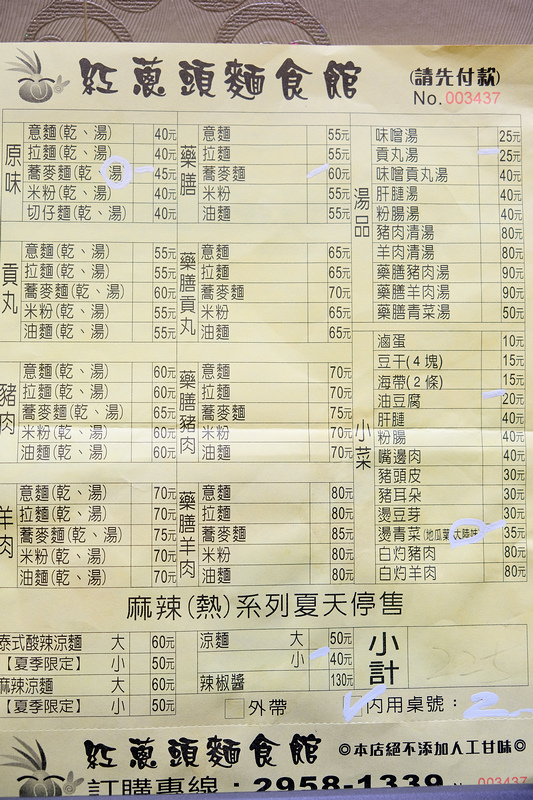 紅蔥頭麵食館
(請先付款)
No. 003437
原味
意麵(乾、湯) 40元
拉麵(乾、湯) 40元
蕎麥麵(乾、湯) 45元
米粉(乾、湯) 40元
切仔麵(乾、湯) 40元
貢丸
意麵(乾、湯) 55元
拉麵(乾、湯) 55元
蕎麥麵(乾、湯) 60元
米粉(乾、湯) 55元
油麵(乾、湯) 55元
豬肉
意麵(乾、湯) 60元
拉麵(乾、湯) 60元
蕎麥麵(乾、湯) 65元
米粉(乾、湯) 60元
油麵(乾、湯) 60元
羊肉
意麵(乾、湯) 70元
拉麵(乾、湯) 70元
蕎麥麵(乾、湯) 75元
米粉(乾、湯) 70元
油麵(乾、湯) 70元
藥膳
意麵 55元
拉麵 55元
蕎麥麵 60元
米粉 55元
油麵 55元
藥膳貢丸
意麵 65元
拉麵 65元
蕎麥麵 70元
米粉 65元
油麵 65元
藥膳豬肉
意麵 70元
拉麵 70元
蕎麥麵 75元
米粉 70元
油麵 70元
藥膳羊肉
意麵 80元
拉麵 80元
蕎麥麵 85元
米粉 80元
油麵 80元
湯品
味噌湯 25元
貢丸湯 25元
味噌貢丸湯 40元
肝腱湯 40元
粉腸湯 40元
豬肉清湯 80元
羊肉清湯 80元
藥膳豬肉湯 90元
藥膳羊肉湯 90元
藥膳青菜湯 50元
小菜
滷蛋 10元
豆干(4塊) 15元
海帶(2條) 15元
油豆腐 20元
肝腱 40元
粉腸 40元
嘴邊肉 40元
豬頭皮 30元
豬耳朵 30元
燙豆芽 30元
燙青菜(地瓜葉、大陸妹) 35元
白灼豬肉 80元
白灼羊肉 80元
麻辣(熱)系列夏天停售
泰式酸辣涼麵 大 60元
【夏季限定】 小 50元
麻辣涼麵 大 60元
【夏季限定】 小 50元
涼麵 大 50元
小 40元
辣椒醬 130元
小計
外帶
內用桌號：2
紅蔥頭麵食館
◎本店絕不添加人工甘味◎
訂購專線：2958-1339
003437